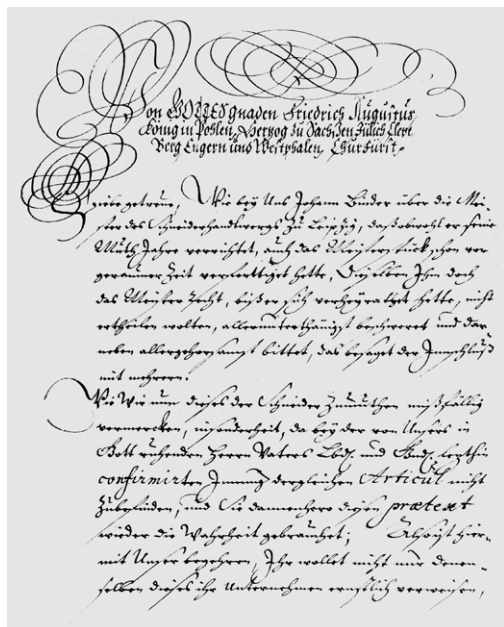 Von GOTTES Gnaden Friedrich Augustus
König in Pohlen, Hertzog zu Sachsen Jülich Cleve
Berg Engern und Westphalen Churfürst.
Liebe getreue, Wie bey Uns Johann Binder über die Mei-
ster des Schneiderhandtwergs zu Leipzig, daß obwohl er seine
Muth Jahre verrichtet, auch das Meisterstück schon vor
geraumer Zeit verfertiget hette, Dieselben Ihm doch
das Meister Recht, bißer sich verheyratet hette, nicht
ertheilen wolten, allerunterthänigst beschweret und dar-
neben allergehorsamst bittet, das besaget der Innschluß
mit mehrern.
Wie Wir nun dieses der Schneider Zumuthen mißfällig
vermercken, insonderheit, da bey der von Unsers in
Gott ruhenden Herrn Vaters Lbd. und Gnd. letzthin
confirmirten Innung dergleichen Articul nicht
Zubefinden, und Sie dannenhero diesen prætext
wieder die Wahrheit gebrauchet; Alß ist hier-
mit Unser begehren, Ihr wollet nicht nur denen-
selben dieses ihr Unternehmen ernstlich verweisen,